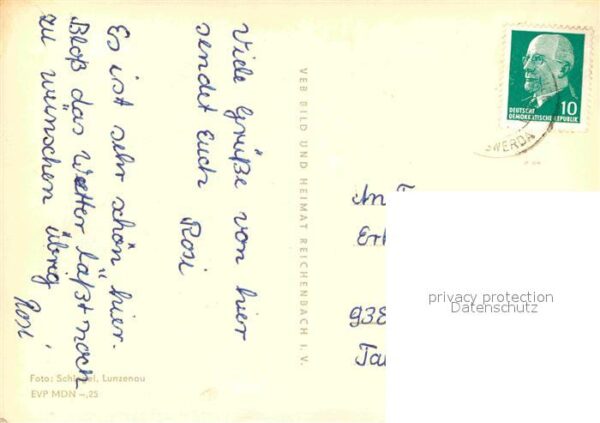 Viele Grüße von hier
sendet Euch Rosi
Es ist sehr schön hier.
Bloß das Wetter läßt noch
zu wünschen übrig
Rosi
VEB BILD UND HEIMAT REICHENBACH I. V.
10
DEUTSCHE
DEMOKRATISCHE REPUBLIK
SWERDA
privacy protection
Datenschutz
938
Foto: Lunzenau
EVP MDN –,25